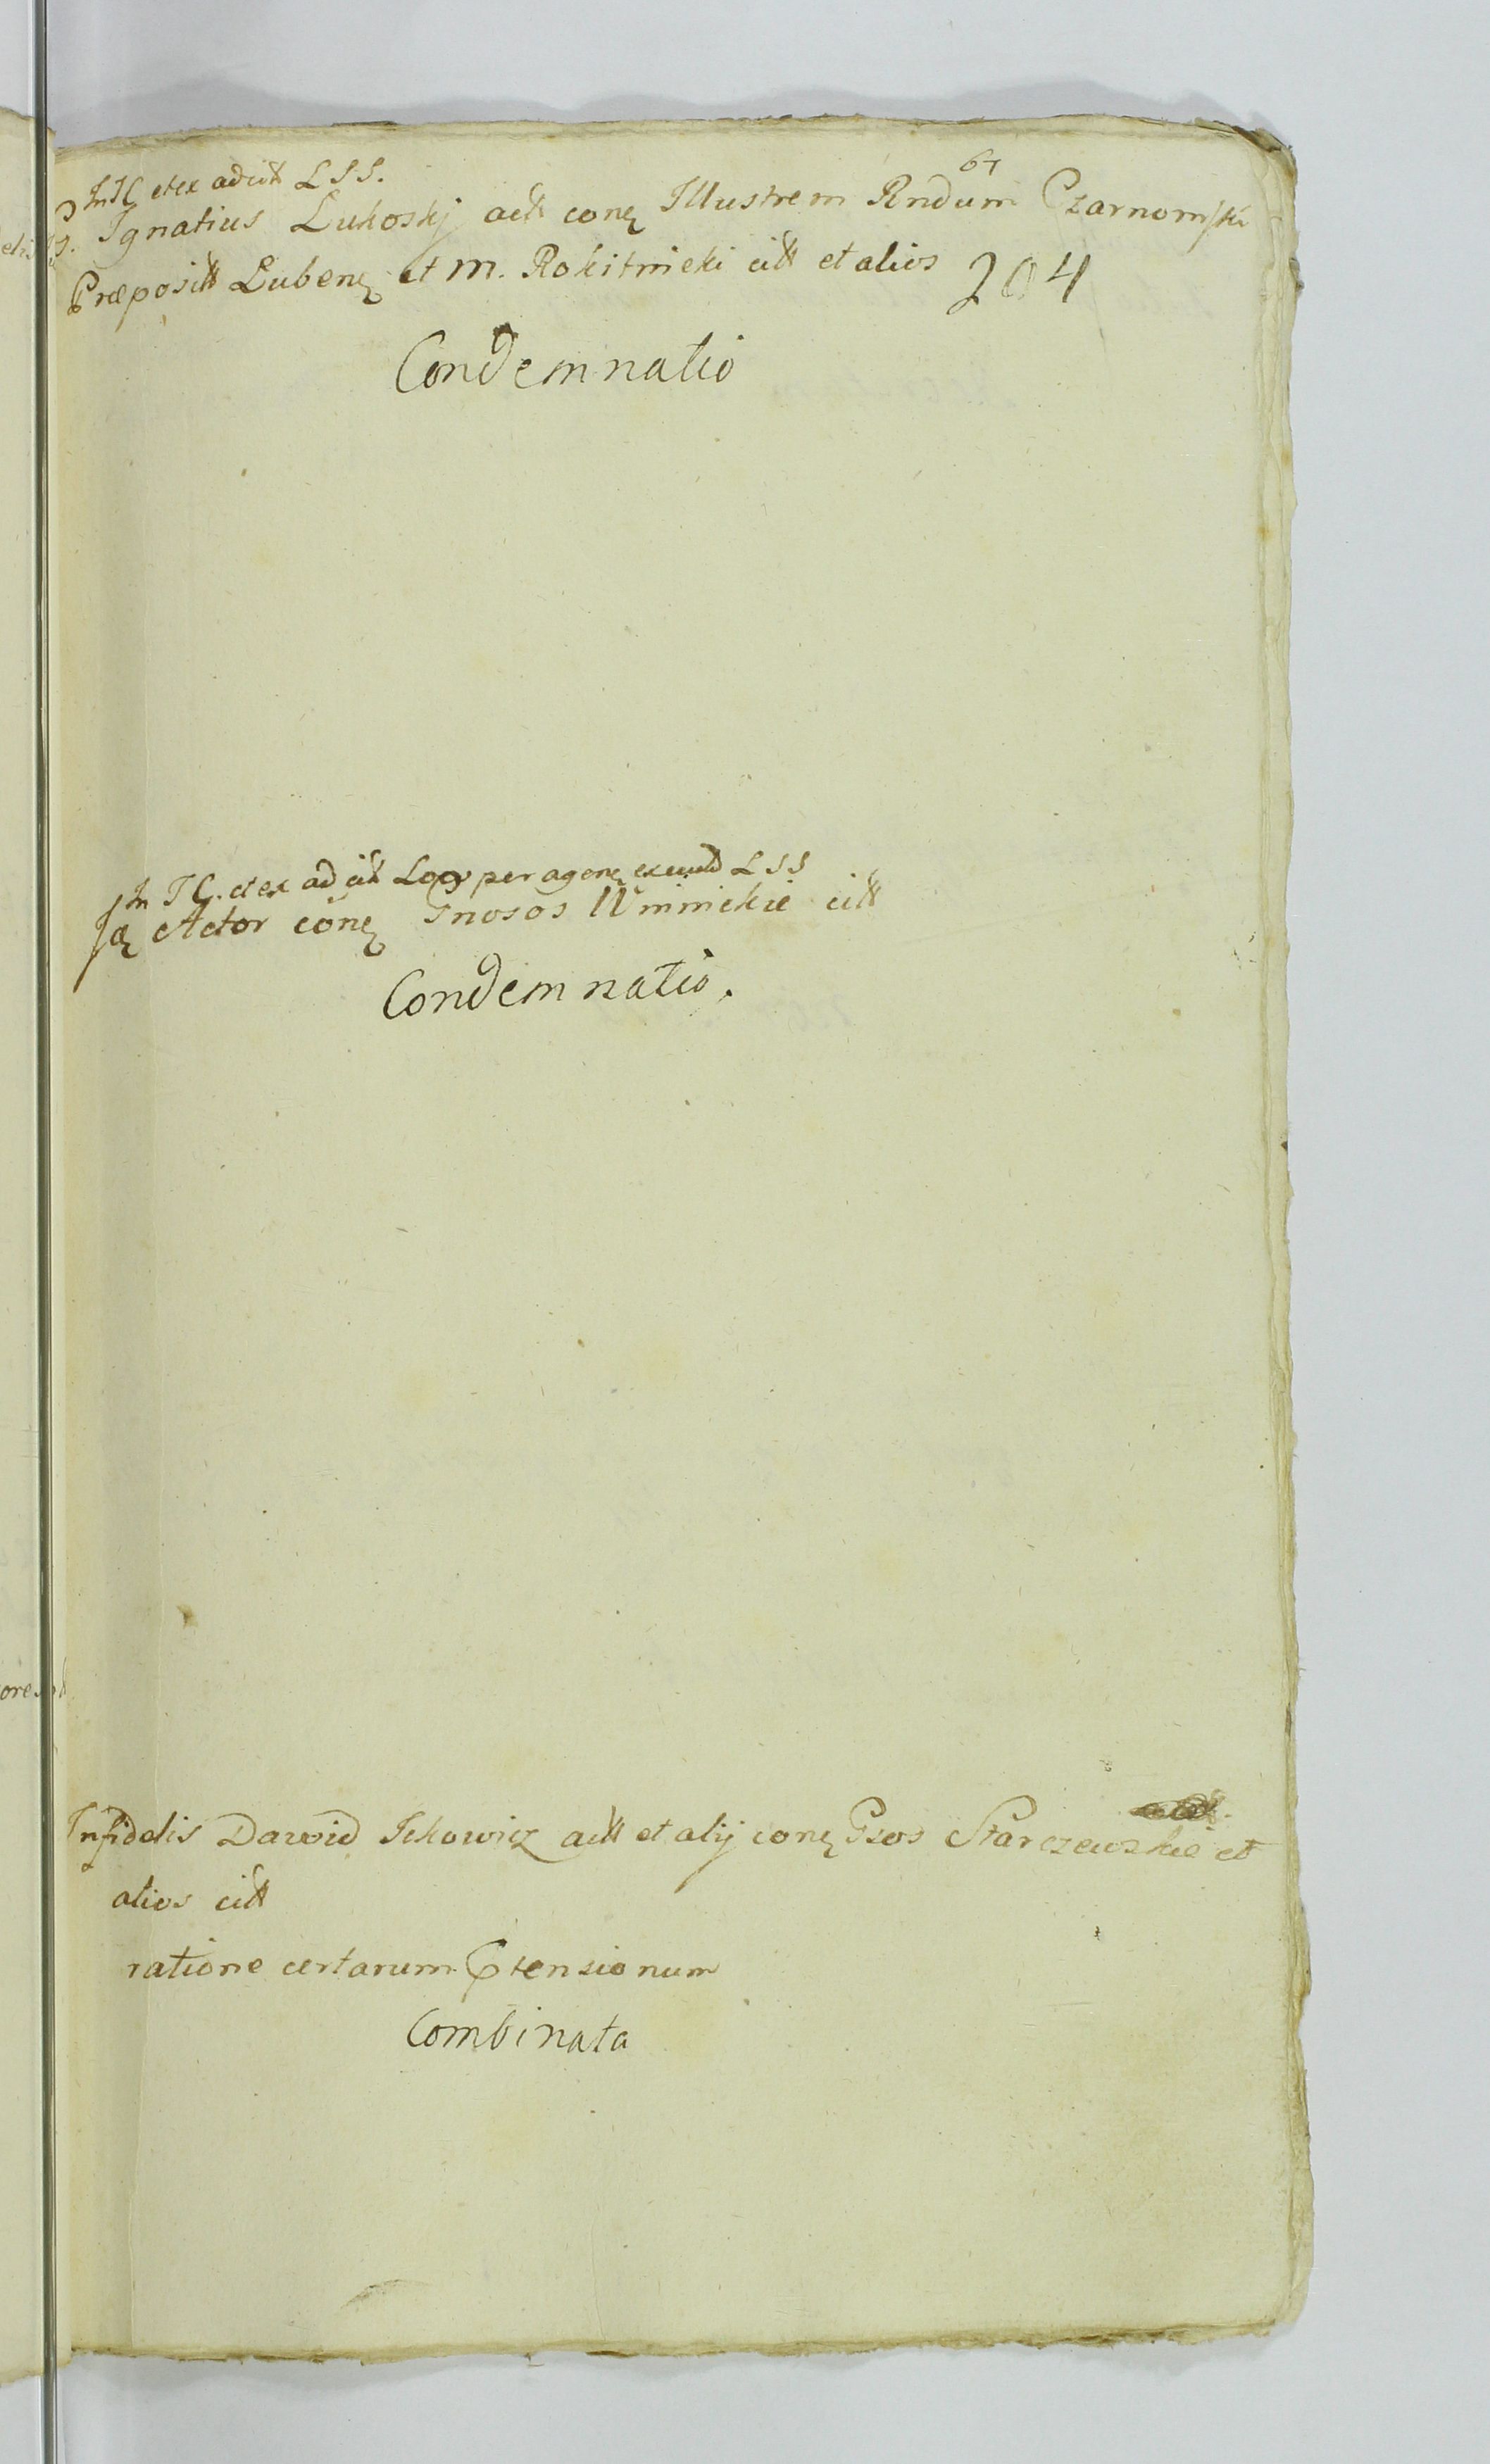 64
In TC et ex ad citt L S S.
Gs. Ignatius Lukoskj actt conq Illustrem Rndum Czarnomski
Præpositt Lubenq et M. Rokitnicki citt et alios 204
Condemnatio
In TC. et ex ad citt per agenq L S S
Idq Actor conq Gnosos Winnickie citt
Condemnatio.
Infidelis Dawid Ickowicz actt et alij conq Gsos Starczewskie et
alios citt
ratione certarum Ptensionum
Combinata